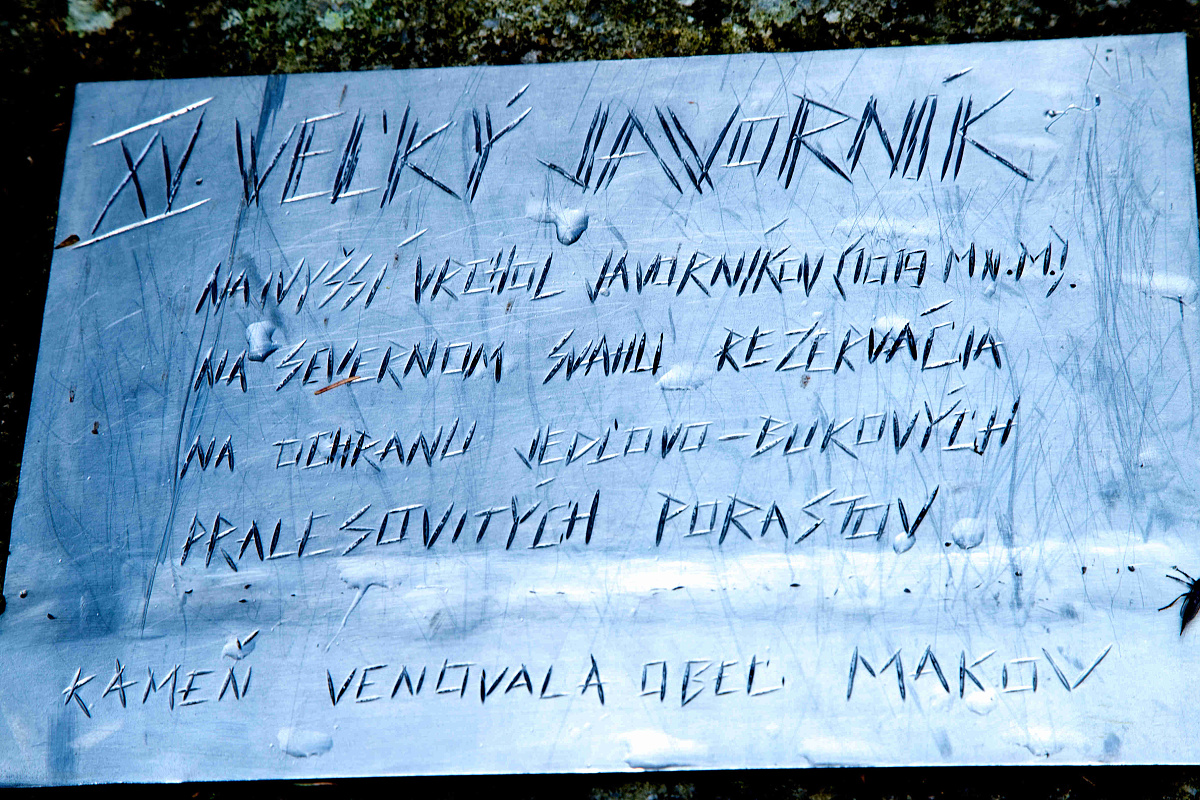 XV. VEĽKÝ JAVORNÍK
NAJVYŠŠÍ VRCHOL JAVORNÍKOV (1019 M N.M.).
NA SEVERNOM SVAHU REZERVÁCIA
NA OCHRANU JEDĽOVO-BUKOVÝCH
PRALESOVITÝCH PORASTOV.
KAMEŇ VENOVALA OBEC MAKOV